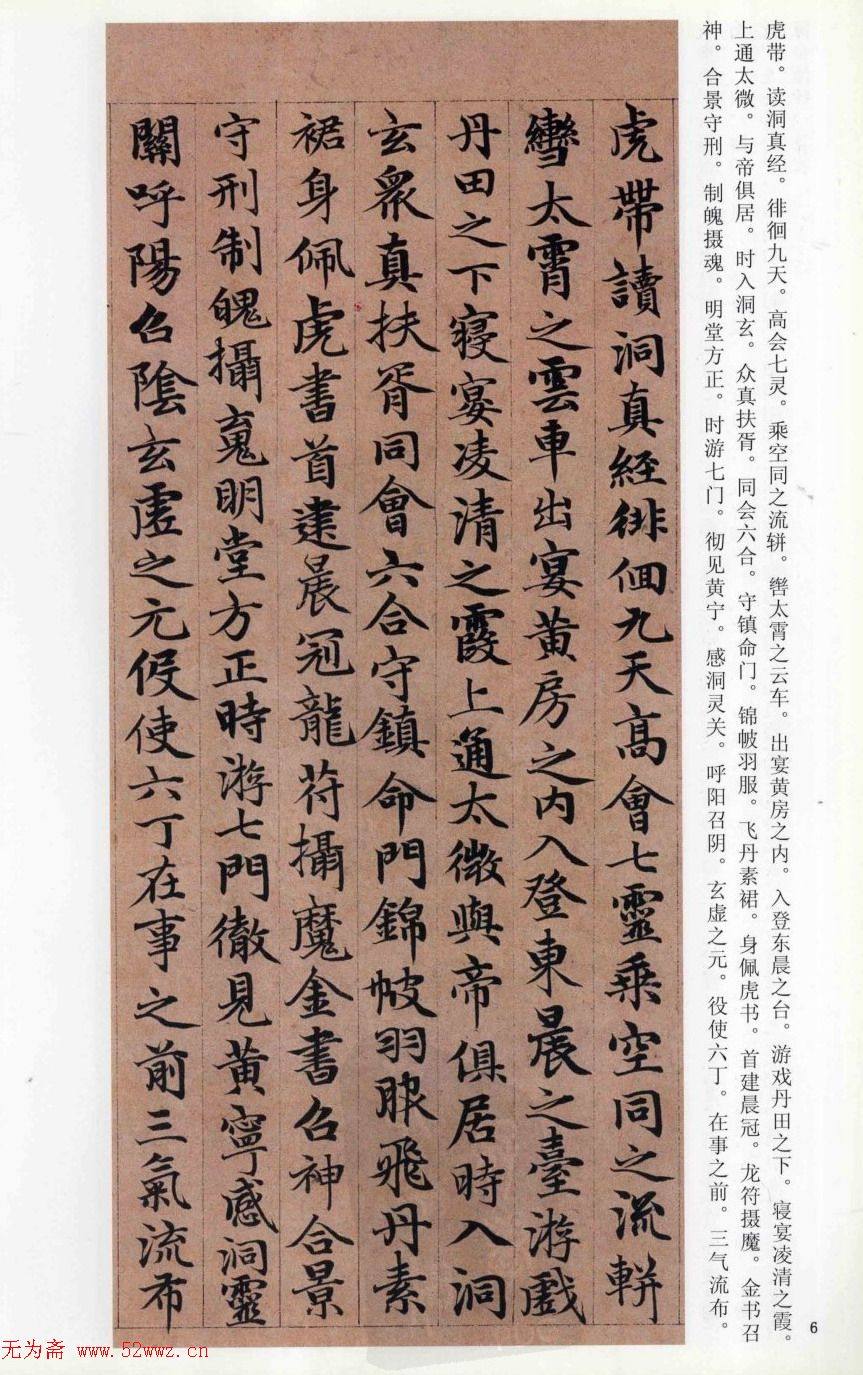 虎带。读洞真经。徘徊九天。高会七灵。乘空同之流𫐌。辔太霄之云车。出宴黄房之内。入登东晨之台。游戏丹田之下。寝宴凌清之霞。
上通太微。与帝俱居。时入洞玄。众真扶胥。同会六合。守镇命门。锦帔羽服。飞丹素裙。身佩虎书。首建晨冠。龙符摄魔。金书召
神。合景守刑。制魄摄魂。明堂方正。时游七门。彻见黄宁。感洞灵关。呼阳召阴。玄虚之元。役使六丁。在事之前。三气流布。
虎帶讀洞真經徘徊九天高會七靈乘空同之流軿
轡太霄之雲車出宴黃房之内入登東晨之臺游戲
丹田之下寝宴凌清之霞上通太微與帝俱居時入洞
玄衆真扶胥同會六合守鎮命門錦帔羽服飛丹素
裙身佩虎書首建晨冠龍符攝魔金書召神合景
守刑制魄攝魂明堂方正時游七門徹見黃寧感洞靈
關呼陽召陰玄虛之元役使六丁在事之前三氣流布
6
无为斋 www.52wwz.cn